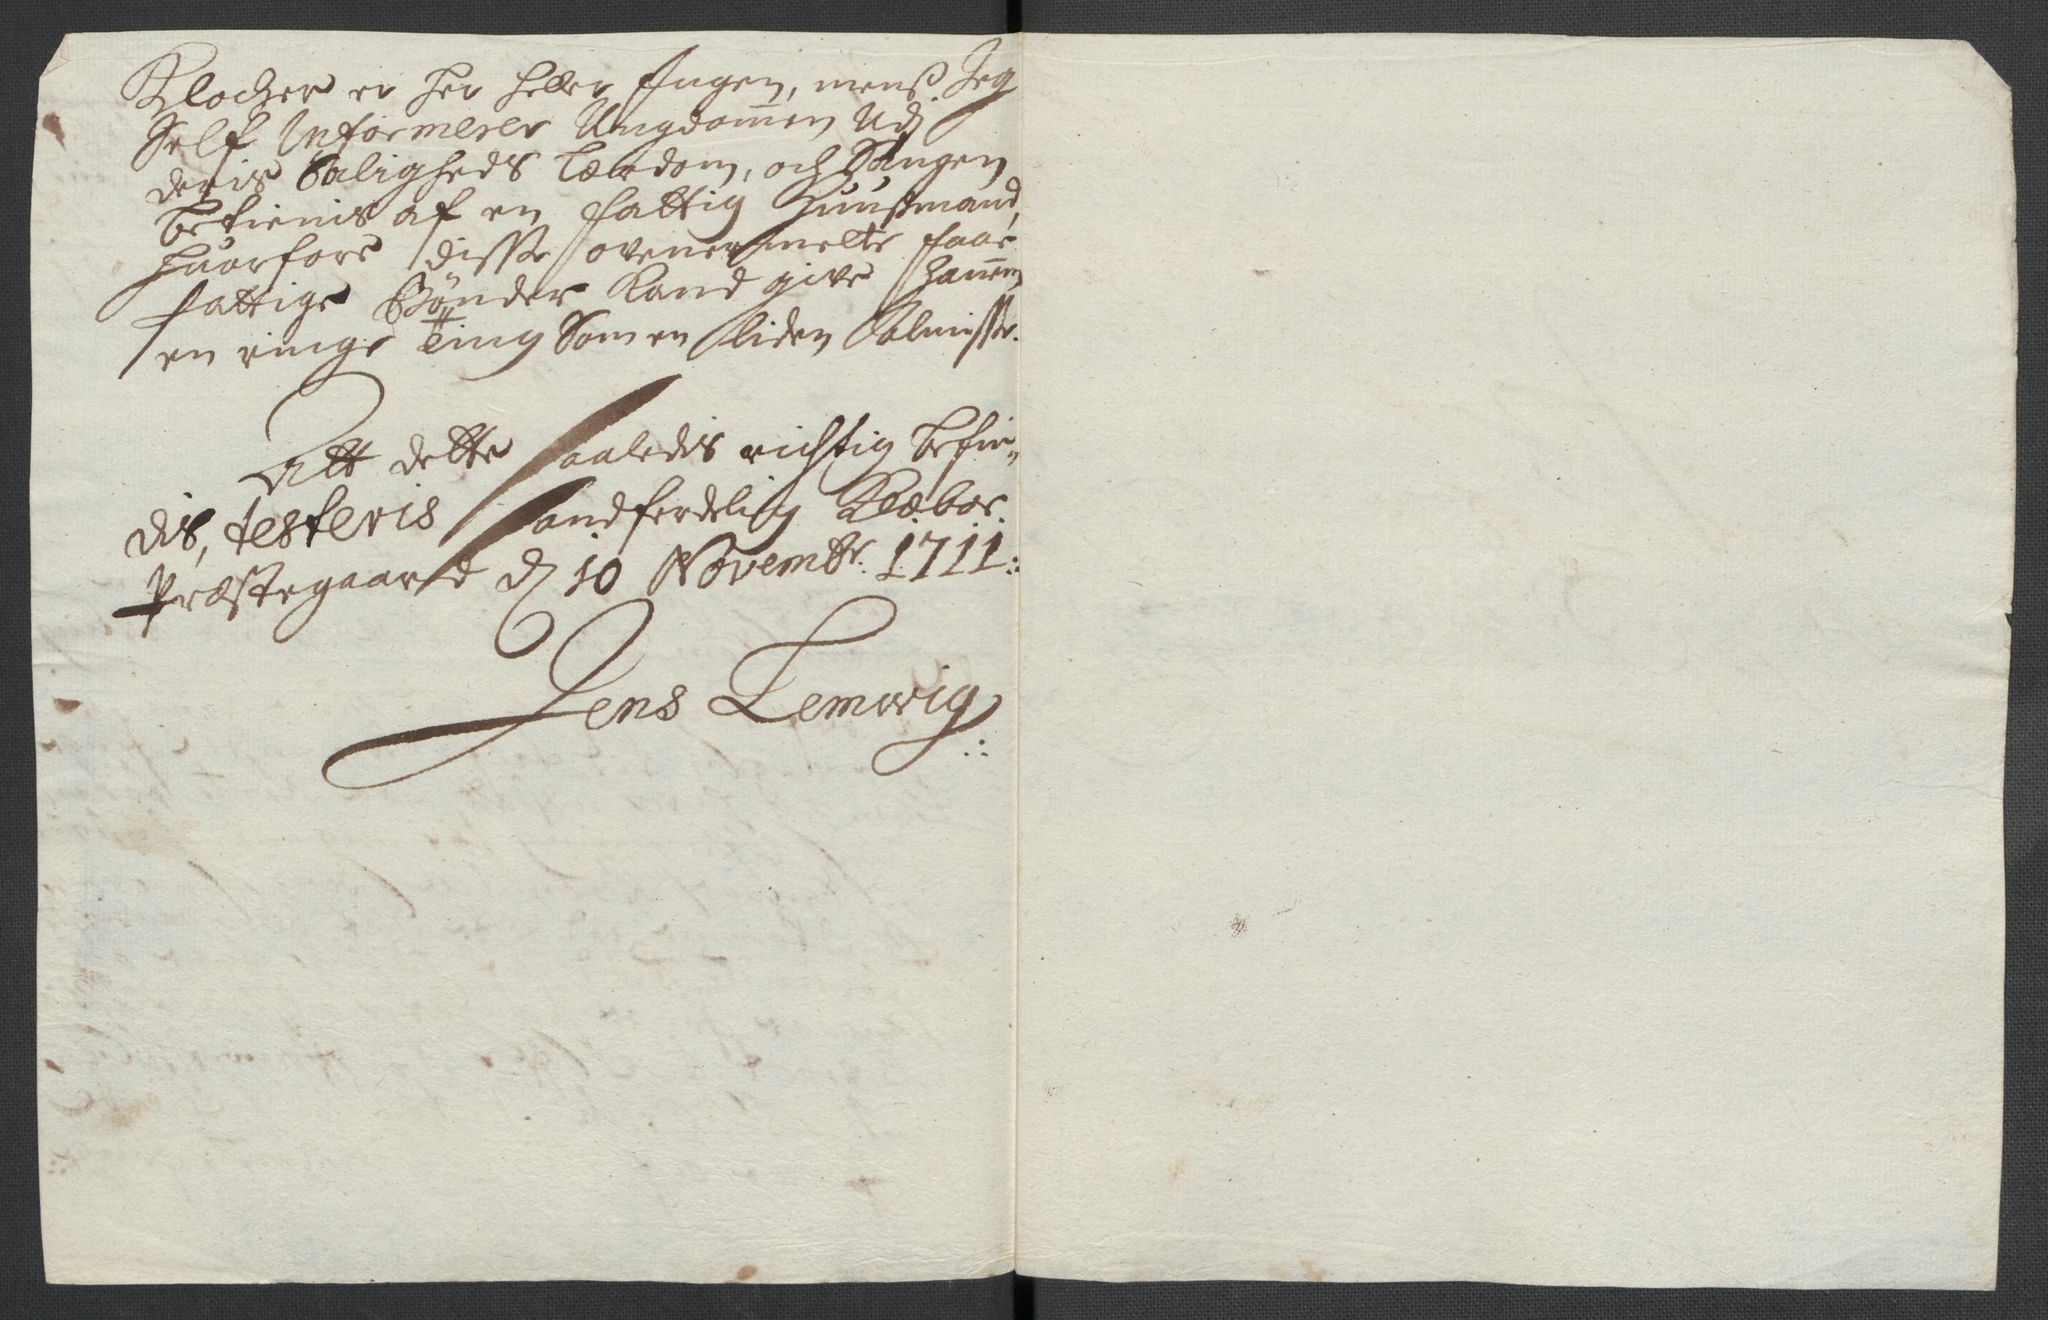 Klocker er her heller Ingen, menß Jeg
Self Informerer Ungdommen Udj
deris Saligheds Lærdom, och Sangen
betienis af en fattig Huusmand,
huorfore disse ovenermelte faae
fattige Bönder Kand give hannem
en ringe Ting Som en liden Almisse.
Att dette saaledis richtig befin„
dis, testeris sandferdelig Klæboe
Præstegaard d 10 Novembr. 1711:
Jens Lemwig